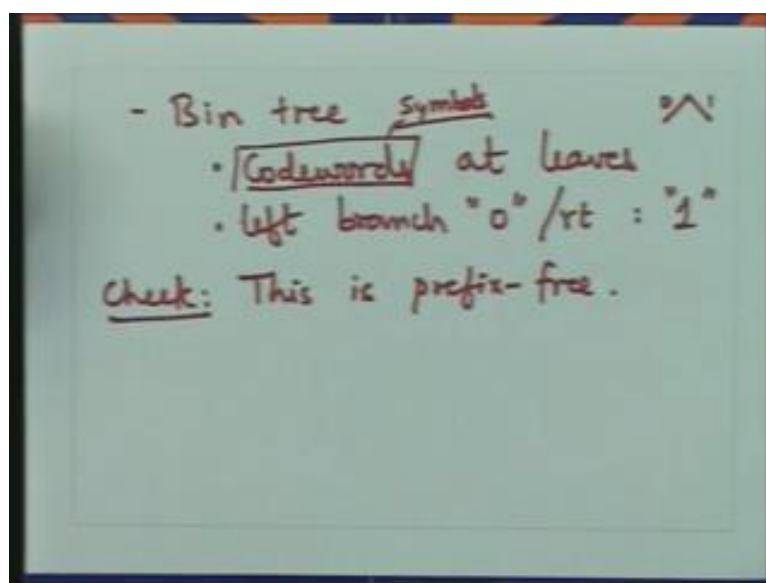 - Bin tree symbols 0 1
· Codewords at leaves
· left branch "0" / rt : "1"
Check: This is prefix-free.